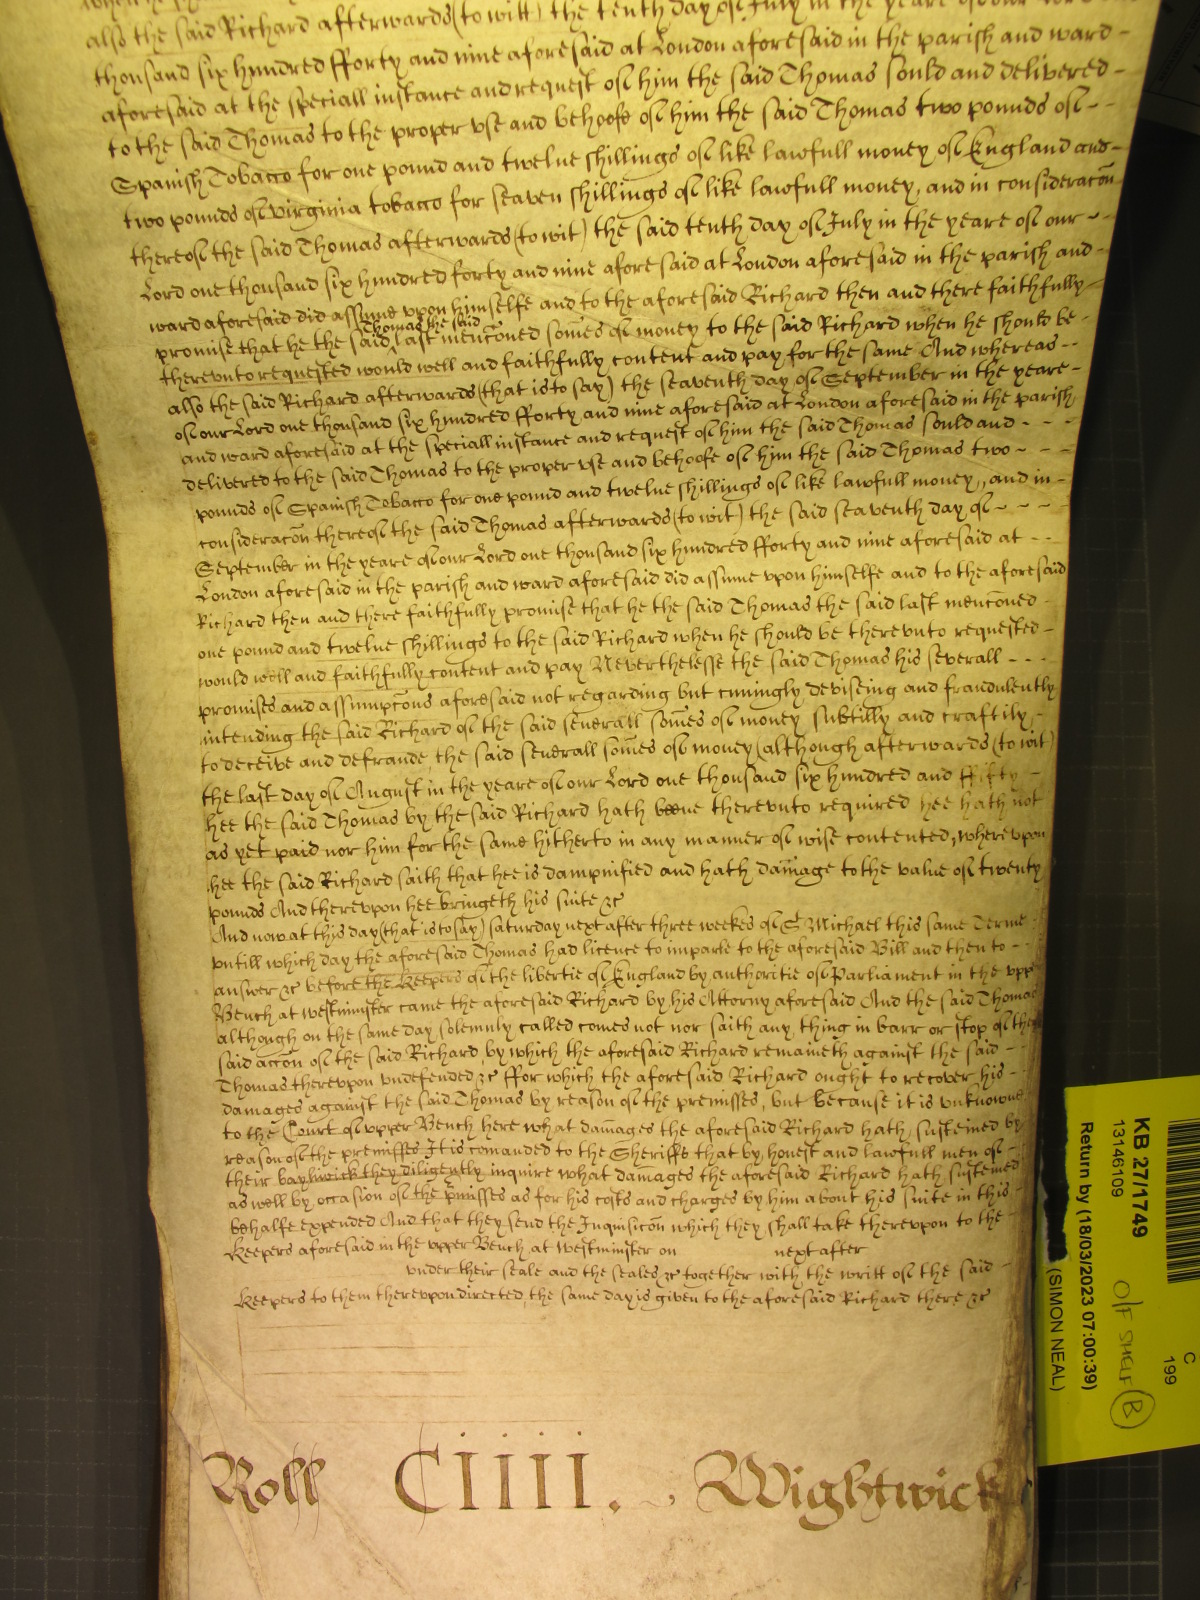 also the said Richard afterwards (to witt) the tenth day of July in the yeare of our Lord one
thousand six hundred fforty and nine aforesaid at London aforesaid in the parish and ward -
aforesaid at the speciall instance and request of him the said Thomas sould and delivered -
to the said Thomas to the proper vse and behoofe of him the said Thomas two pounds of - -
Spanish Tobacco for one pound and twelue shillings of like lawfull money of England and -
two pounds of virginia tobacco for seaven shillings of like lawfull money, and in consideracõn
thereof the said Thomas afterwards (to wit) the said tenth day of July in the yeare of our - -
Lord one thousand six hundred forty and nine aforesaid at London aforesaid in the parish and -
ward aforesaid did assume vpon himselfe and to the aforesaid Richard then and there faithfully -
promise that he the said Thomas the said last menc̃oned som̃es of money to the said Richard when he should be -
therevnto requested would well and faithfully content and pay for the same And whereas - -
also the said Richard afterwards (that is to say) the seaventh day of September in the yeare -
of our Lord one thousand six hundred fforty and nine aforesaid at London aforesaid in the parish
and ward aforesaid at the speciall instance and request of him the said Thomas sould and - - -
delivered to the said Thomas to the proper vse and behoofe of him the said Thomas two - - -
pounds of Spanish Tobacco for one pound and twelue shillings of like lawfull money, and in -
consideracõn thereof the said Thomas afterwards (to wit) the said seaventh day of - - - -
September in the yeare of our Lord one thousand six hundred fforty and nine aforesaid at - -
London aforesaid in the parish and ward aforesaid did assume vpon himselfe and to the aforesaid
Richard then and there faithfully promise that he the said Thomas the said last menc̃oned -
one pound and twelue shillings to the said Richard when he should be therevnto requested -
would well and faithfully content and pay Neverthelesse the said Thomas his severall - - -
promises and assumpc̃ons aforesaid not regarding but cuningly deviseing and fraudulently
intending the said Richard of the said severall som̃es of money subtilly and craftily -
to deceive and defraude, the said severall som̃es of money (although afterwards (to wit)
the last day of August in the yeare of our Lord one thousand six hundred and ffifty -
hee the said Thomas by the said Richard hath beene therevnto required hee hath not
as yet paid nor him for the same hitherto in any manner of wise contented, wherevpon
hee the said Richard saith that hee is dampnified and hath dam̃age to the value of twenty
pounds And therevpon hee bringeth his suite &c
And now at this day (that is to say) saturday next after three weekes of St Michael this same Terme
vntill which day the aforesaid Thomas had licence to imparle to the aforesaid Bill and then to - -
answer &c before the Keepers of the libertie of England by authoritie of Parliament in the vpp
Bench at westminster came the aforesaid Richard by his Attorny aforesaid And the said Thomas
although on the same day solemnly called comes not nor saith any thing in barr or stop of the
said acc̃on of the said Richard, by which the aforesaid Richard remaineth against the said - -
Thomas therevpon vndefended &c ffor which the aforesaid Richard ought to recover his -
damages against the said Thomas by reason of the premisses, but because it is vnknowne
to the Court of vpper Bench here what dam̃ages the aforesaid Richard hath susteined by
reason of the premisses It is com̃anded to the Sheriffe that by honest and lawfull men of -
their bayliwick they diligently inquire what dam̃ages the aforesaid Richard hath susteined
as well by occasion of the p̃misses as for his costs and charges by him about his suite in this -
behalfe expended And that they send the Inquisic̃on which they shall take therevpon to the -
Keepers aforesaid in the vpper Bench at westminster on next after
vnder their seale and the seales &c together with the writt of the said -
Keepers to them therevpon directed, the same day is given to the aforesaid Richard there &c
Roll CIIII. Wightwick
KB 27/1749
13146109
Return by (18/03/2023 07:00:39)
(SIMON NEAL)
O/F SHELF B
C
199